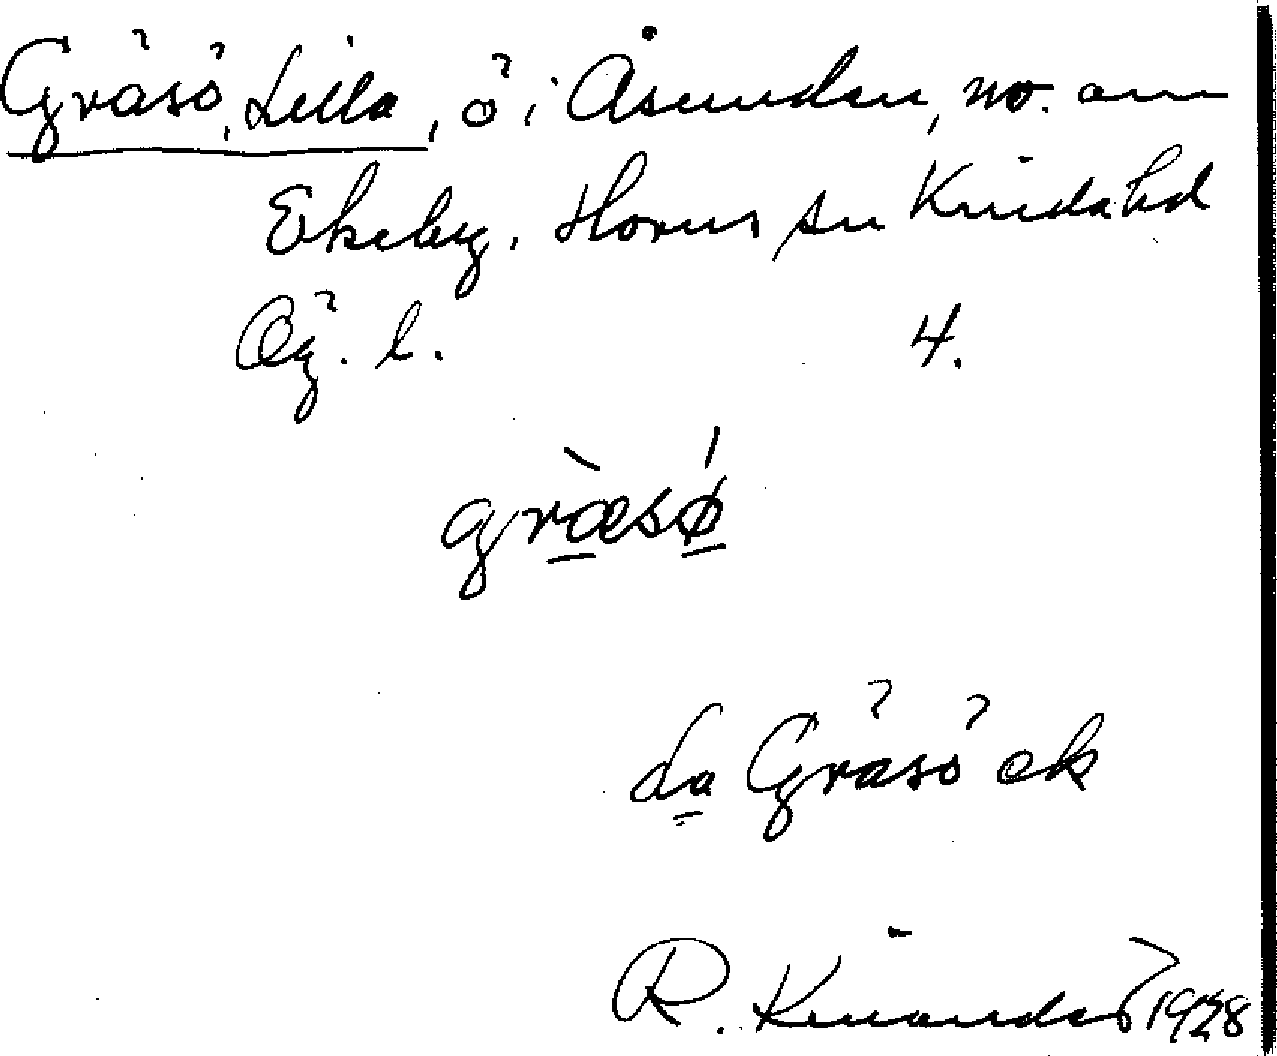 Gräsö, Lilla, ö i Åsunden, no. om
Ekeby. Horns sn Kinda hd
Ög. l. 4.
græ̀sø̀
da Gräsö ek
R. Kinander 1928